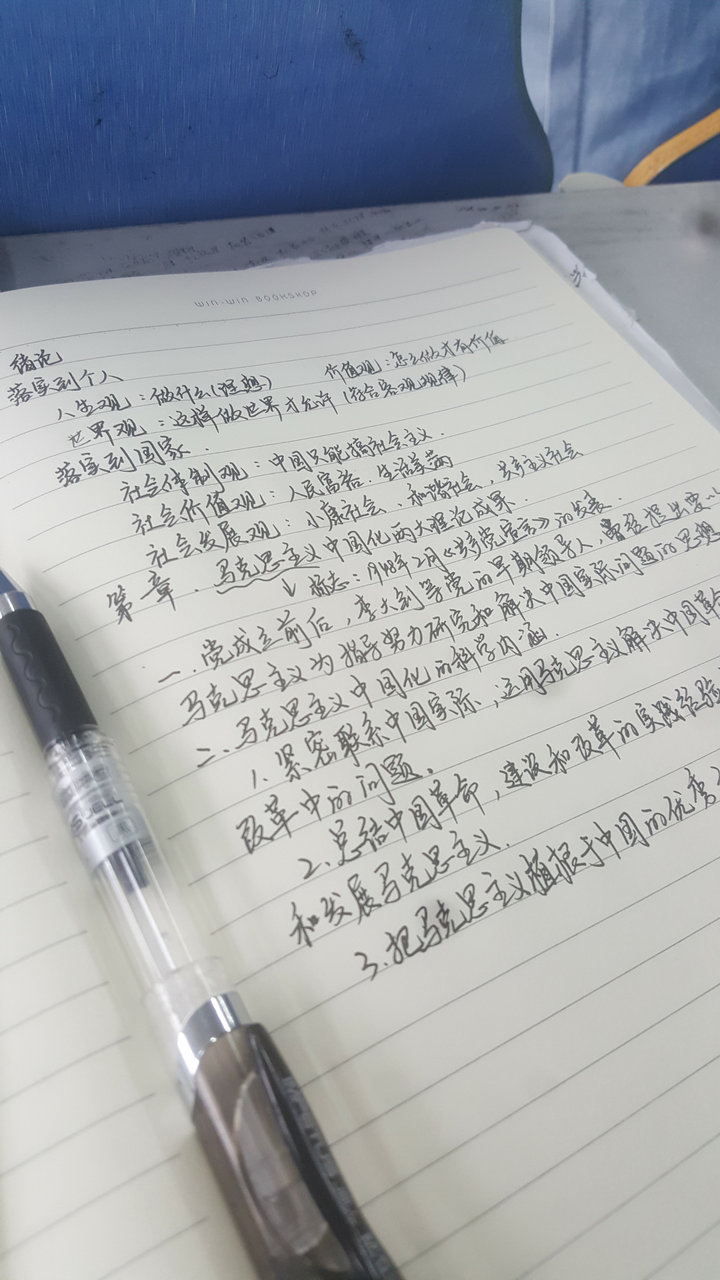 WIN-WIN BOOKSHOP
绪论
落实到个人
人生观：做什么（理想） 价值观：怎么做才有价值
世界观：这样做世界才允许（符合客观规律）
落实到国家.
社会体制观：中国只能搞社会主义.
社会价值观：人民富裕.生活美满
社会发展观：小康社会、和谐社会，共产主义社会
第一章.马克思主义中国化两大理论成果.
↓标志：1948年2月《共产党宣言》的发表.
一.党成立前后，李大钊等党的早期领导人，曾经提出要以
马克思主义为指导努力研究和解决中国实际问题的思想
二.马克思主义中国化的科学内涵.
1.紧密联系中国实际，运用马克思主义解决中国革命
改革中的问题。
2.总结中国革命，建设和改革的实践经验
和发展马克思主义.
3.把马克思主义植根于中国的优秀